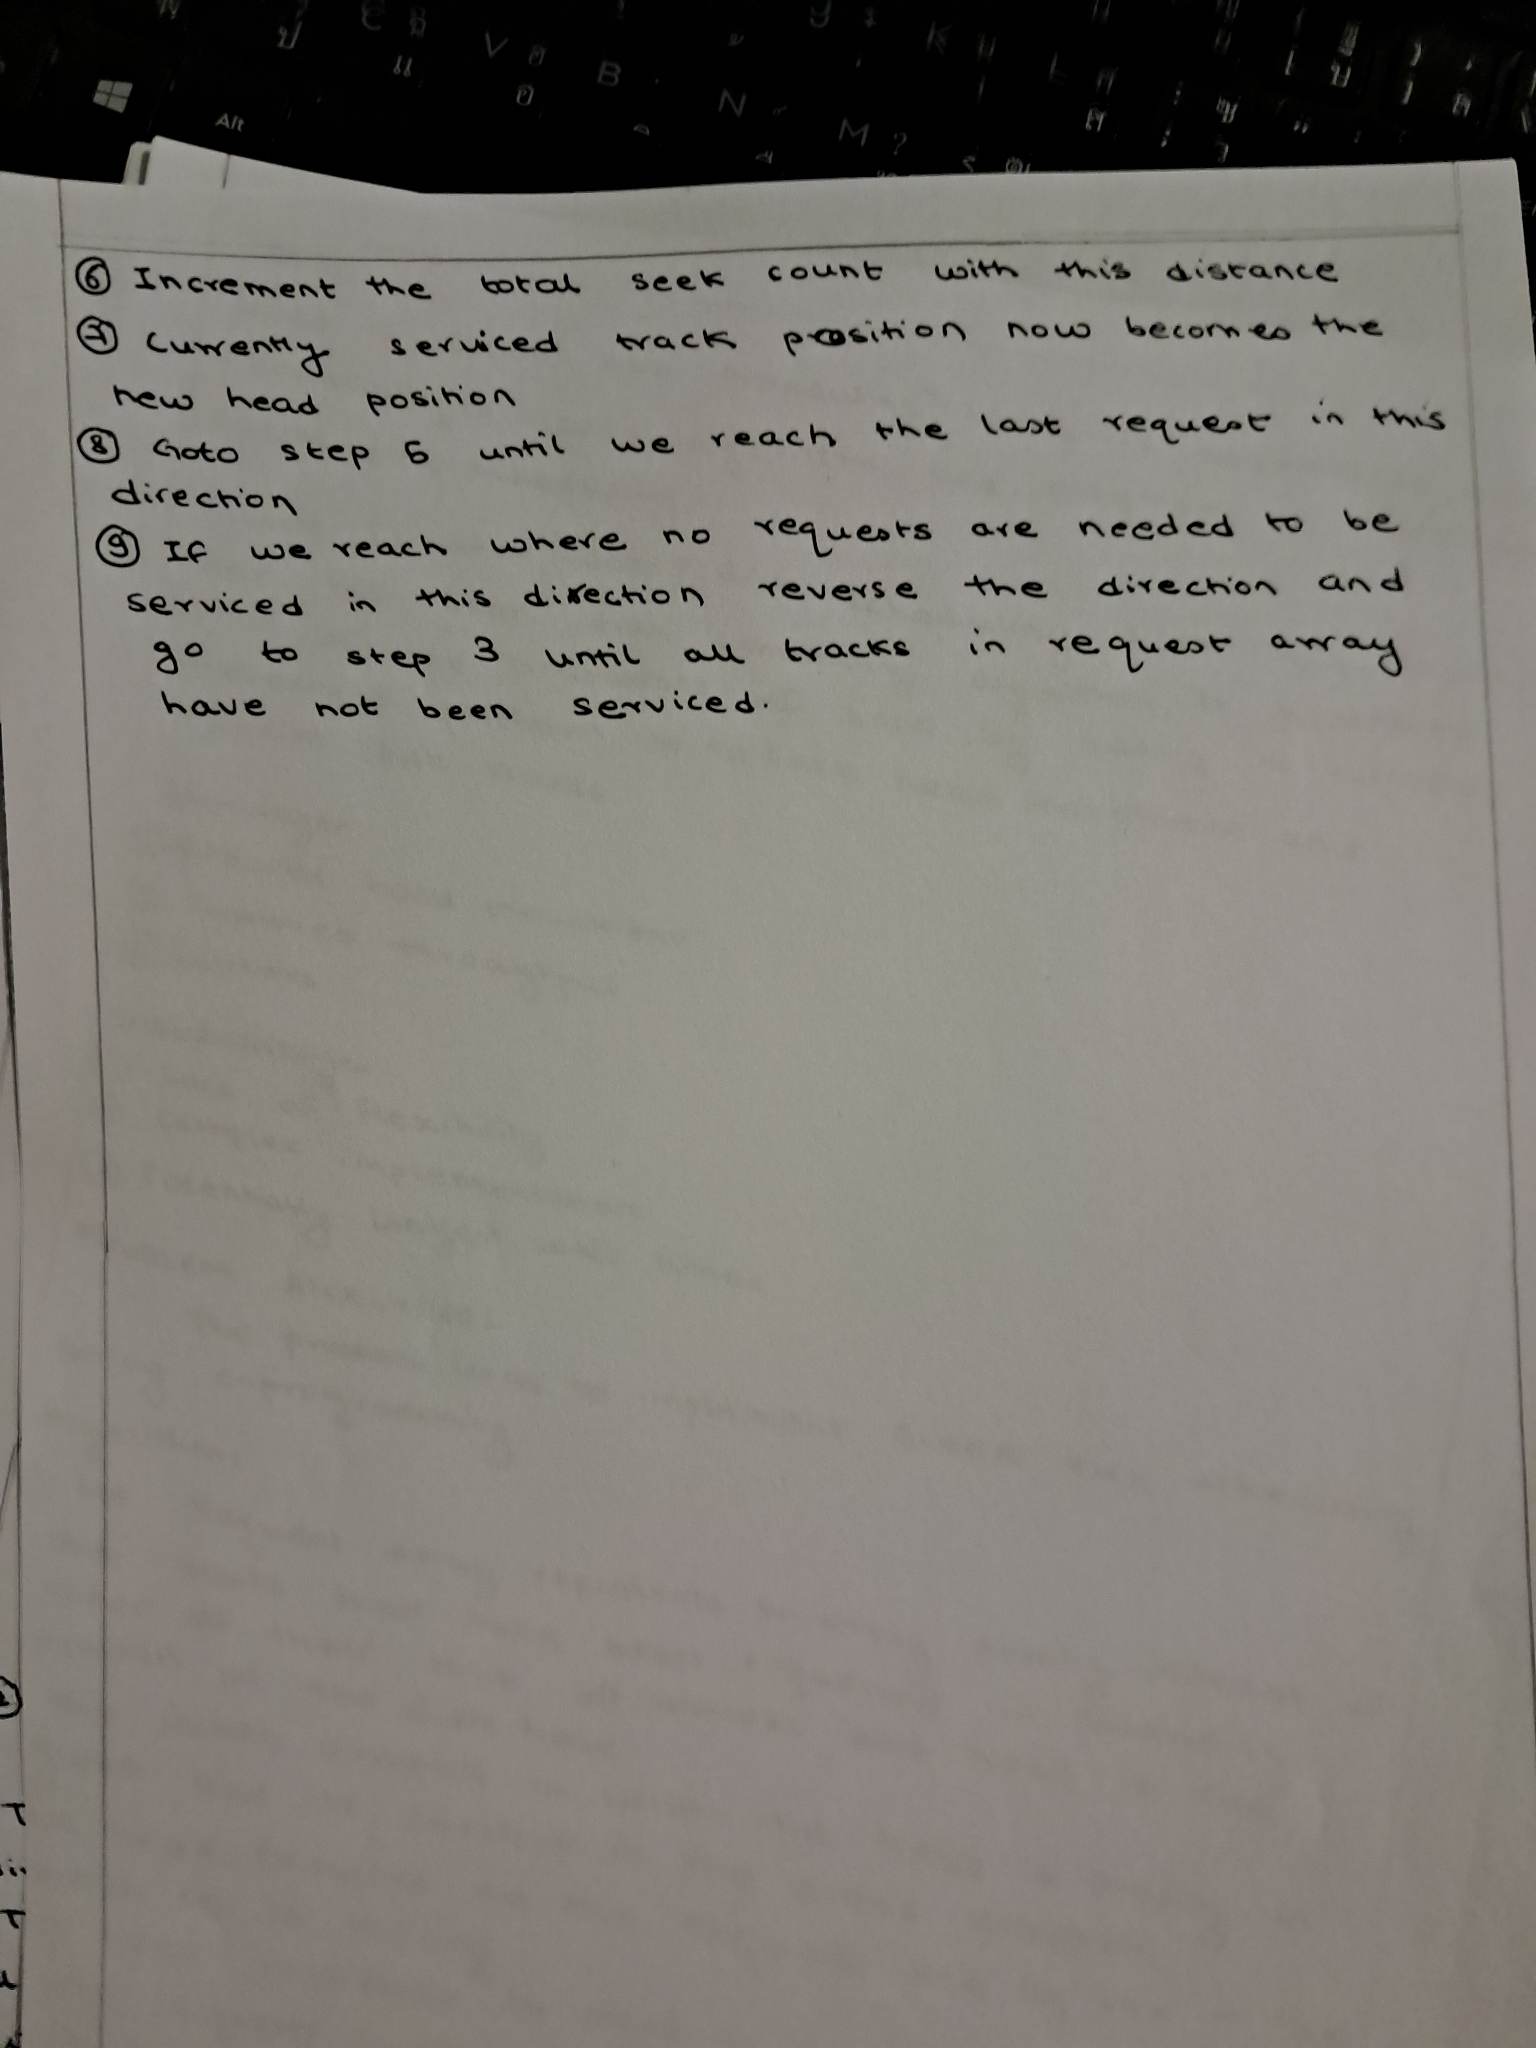 Alt
V
B
N
M ?
K
L
⑥ Increment the total seek count with this distance
⑦ Currently serviced track position now becomes the
new head position
⑧ Goto step 5 until we reach the last request in this
direction
⑨ If we reach where no requests are needed to be
serviced in this direction reverse the direction and
go to step 3 until all tracks in request array
have not been serviced.